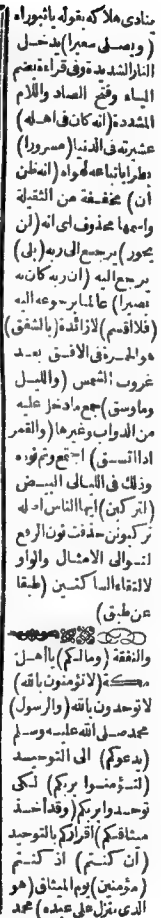 ينادي هلاكه بقوله ياثبوراه
(ويصلى سعيرا) يدخل
النار الشديدة وفي قراءة بضم
الياء وفتح الصاد واللام
المشددة (انه كان في اهله)
عشيرته في الدنيا (مسرورا)
بطرا باتباعه لهواه (انه ظن
أن) مخففة من الثقيلة
واسمها محذوف اى انه (لن
يحور) يرجع الى ربه (بلى)
يرجع اليه (ان ربه كان به
بصيرا) عالما برجوعه اليه
(فلا اقسم) لا زائدة (بالشفق)
هو الحمرة في الافق بعد
غروب الشمس (والليل
وما وسق) جمع ما دخل عليه
من الدواب وغيرها (والقمر
اذا اتسق) اجتمع وتم نوره
وذلك في الليالى البيض
(لتركبن) ايها الناس اصله
تركبونن حذفت نون الرفع
لتوالى الامثال والواو
لالتقاء الساكنين (طبقا
عن طبق)
والنفقة (ومالكم) يا أهل
مكة (لا تؤمنون بالله)
لا توحدون بالله (والرسول)
محمد صلى الله عليه وسلم
(يدعوكم) الى التوحيد
(لتؤمنوا بربكم) لكى
توحدوا بربكم (وقد أخذ
ميثاقكم) اقراركم بالتوحيد
(ان كنتم) اذ كنتم
(مؤمنين) يوم الميثاق (هو
الذى ينزل على عبده) محمد